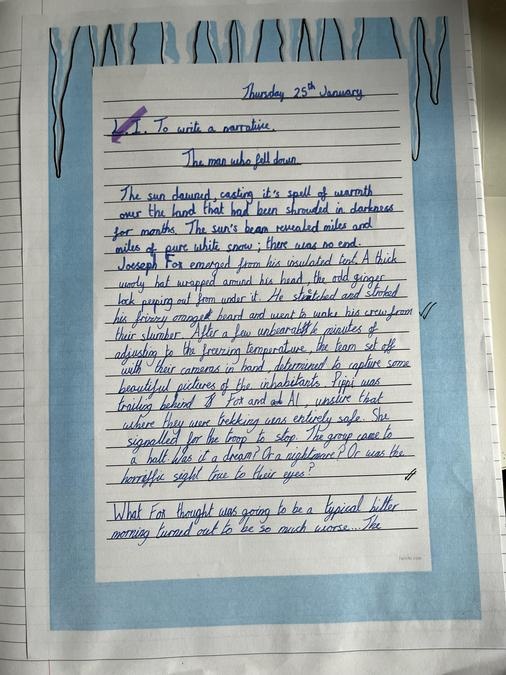 Thursday 25th January
L.I. To write a narrative.
The man who fell down
The sun dawned, casting it's spell of warmth
over the land that had been shrouded in darkness
for months. The sun's beam revealed miles and
miles of pure white snow; there was no end.
Joeseph Fox emerged from his insulated tent. A thick
wooly hat wrapped around his head, the odd ginger
lock peeping out from under it. He stretched and stroked
his frizzy orange beard and went to wake his crew from
their slumber. After a few unbearable minutes of
adjusting to the freezing temperature, the team set off
with their cameras in hand, determined to capture some
beautiful pictures of the inhabitants. Pippi was
trailing behind Fox and Al, unsure that
where they were trekking was entirely safe. She
signalled for the troop to stop. The group came to
a halt. Was it a dream? Or a nightmare? Or was the
horreffic sight true to their eyes?
What Fox thought was going to be a typical bitter
morning turned out to be so much worse.... The